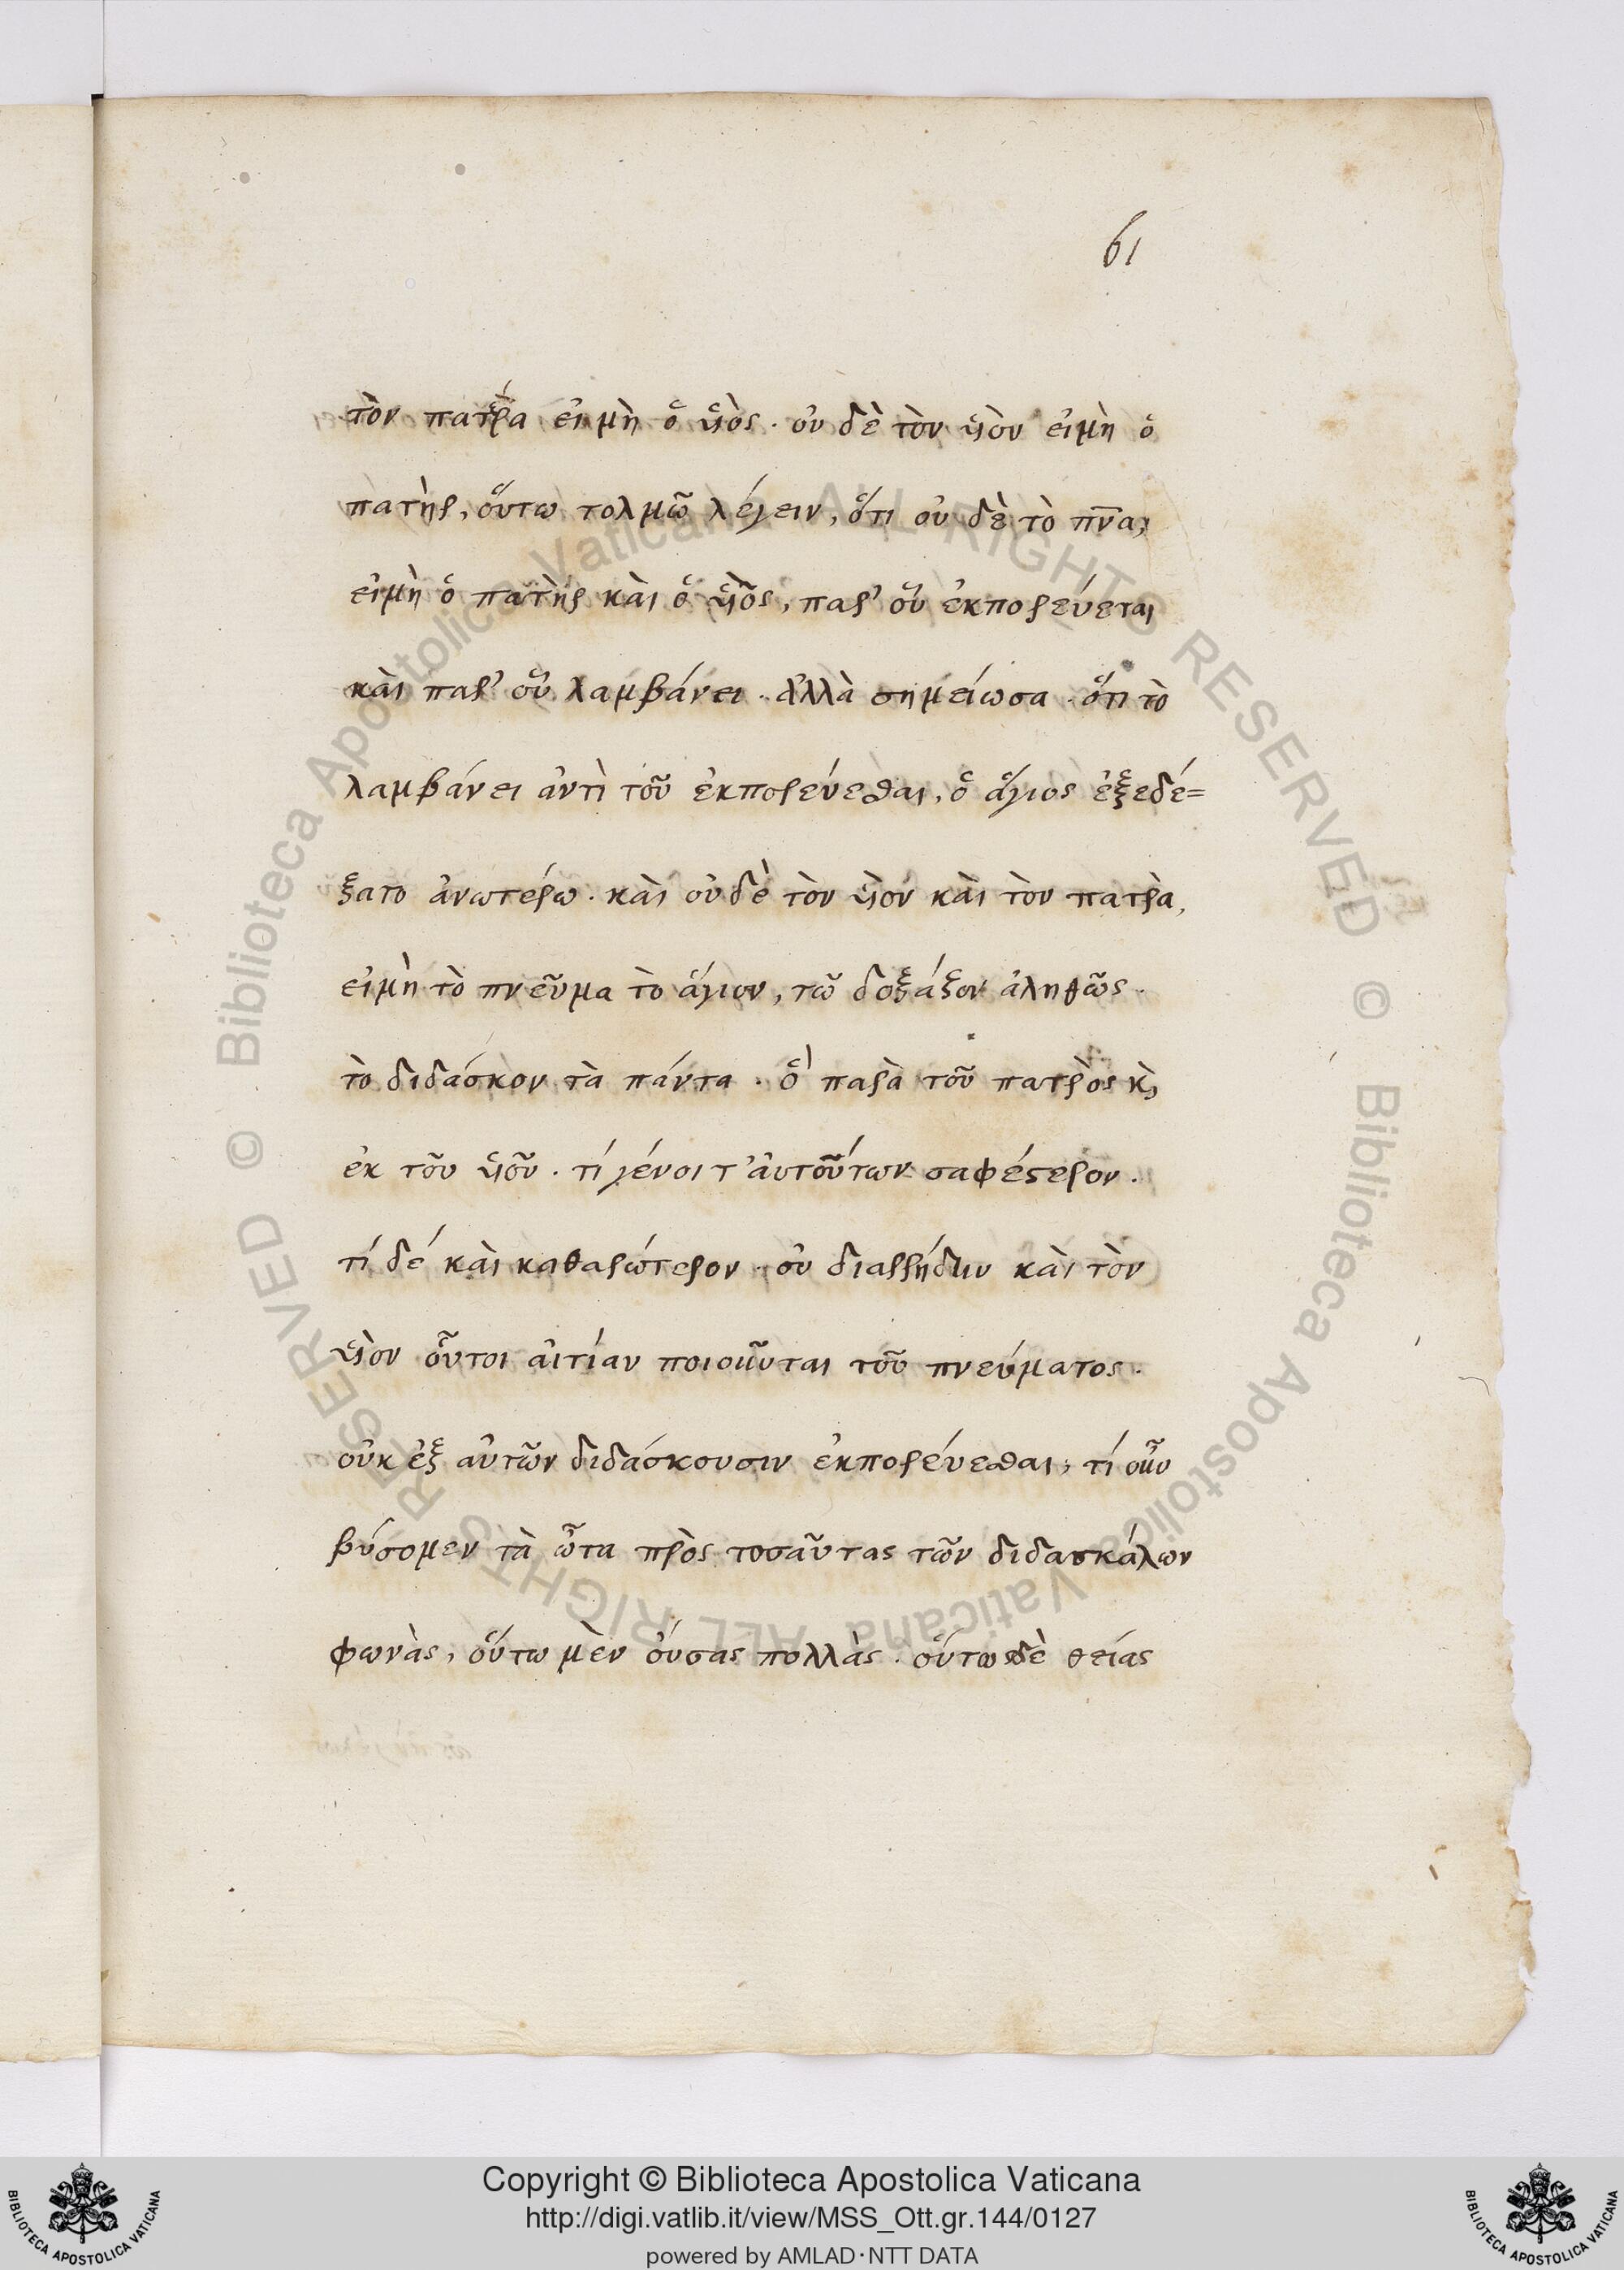 61
τὸν πατέρα εἰ μὴ ὁ υἱὸς · οὐ δὲ τὸν υἱὸν εἰμὴ ὁ
πατὴρ, οὕτω τολμῶ λέγειν, ὅτι οὐ δὲ τὸ πν̅α,
εἰμὴ ὁ πατὴρ κὰι ὁ υἱὸς, παρ' οὗ ἐκπορεύεται
κὰι παρ' οὗ λαμβάνει · ἀλλὰ σημείωσα · ὅτι τὸ
λαμβάνει ἀντὶ τοῦ ἐκπορεύεσθαι, ὁ ἅγιος ἐξεδέ=
ξατο ἀνωτέρω · κὰι οὐ δὲ τὸν υἱὸν κὰι τὸν πατρὰ,
εἰμὴ τὸ πνεῦμα τὸ ἅγιον, τῶ δοξάξον ἀληθῶς ·
τὸ διδάσκον τὰ πάντα · ὃ παρὰ τοῦ πατρὸς κὲ,
ἐκ τοῦ υἱοῦ · τί γένοι τ' ἀυτούτων σαφέστερον ·
τί δέ κὰι καθαρώτερον · οὐ διαρρήδην κὰι τὸν
υἱὸν οὗτοι ἀιτίαν ποιοῦνται τοῦ πνεύματος ·
οὐκ ἐξ αὐτῶν διδάσκουσιν ἐκπορεύεσθαι, τί οὖν
βύσομεν τὰ ὦτα πρὸς τοσαῦτας τῶν διδασκάλων
φωνὰς, οὕτω μὲν ὀύσας πολλὰς · οὕτω δὲ θείας
Copyright © Biblioteca Apostolica Vaticana
http://digi.vatlib.it/view/MSS_Ott.gr.144/0127
powered by AMLAD·NTT DATA
© Biblioteca Apostolica Vaticana ALL RIGHTS RESERVED
© Biblioteca Apostolica Vaticana ALL RIGHTS RESERVED
BIBLIOTECA APOSTOLICA VATICANA
BIBLIOTECA APOSTOLICA VATICANA